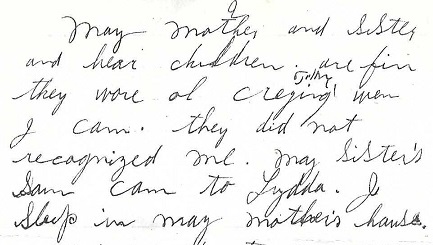 May mother and sister
and hear children. are fin
they wore ol creging wen
I cam. they did not
recognized me. may sister's
cam to Lydda. I
Sleep in may mother's haus.